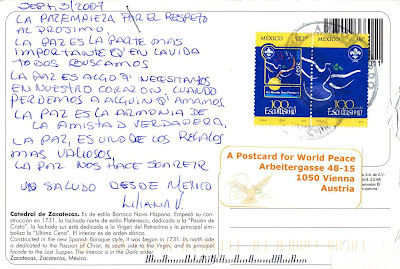 Sept, 3/2007
LA PAZ EMPIEZA POR EL RESPETO
AL PROJIMO,
LA PAZ ES LA PARTE MAS
IMPORTANTE Q' EN LA VIDA
TODOS BUSCAMOS
LA PAZ ES ALGO Q' NECESITAMOS
EN NUESTRO CORAZON, CUANDO
PERDEMOS A ALGUIEN Q' AMAMOS.
LA PAZ ES LA ARMONIA DE
LA AMISTAD VERDADERA,
LA PAZ, ES UNO DE LOS REGALOS
MAS VALIOSOS,
LA PAZ NOS HACE SONREIR
UN SALUDO DESDE MÉXICO
LILIANA V.
MÉXICO
MÉXICO
100 años de Escultismo
100 años de Escultismo
A Postcard for World Peace
Arbeitergasse 48-15
1050 Vienna
Austria
Catedral de Zacatecas. Es de estilo Barroco Novo Hispano. Empezó su construcción en 1731, la fachada norte de estilo Plateresco, dedicada a la "Pasión de
Cristo", la fachada sur está dedicada a la Virgen del Patrocinio y la principal simboliza la "Última Cena". El interior es de orden dórico.
Constructed in the new Spanish Baroque style, it was begun in 1731. Its north side
is dedicated to the Passion of Christ, its south side to the Virgin, and its principal
facade to the Last Supper. The interior is Doric.
Zacatecas, Zacatecas, México.